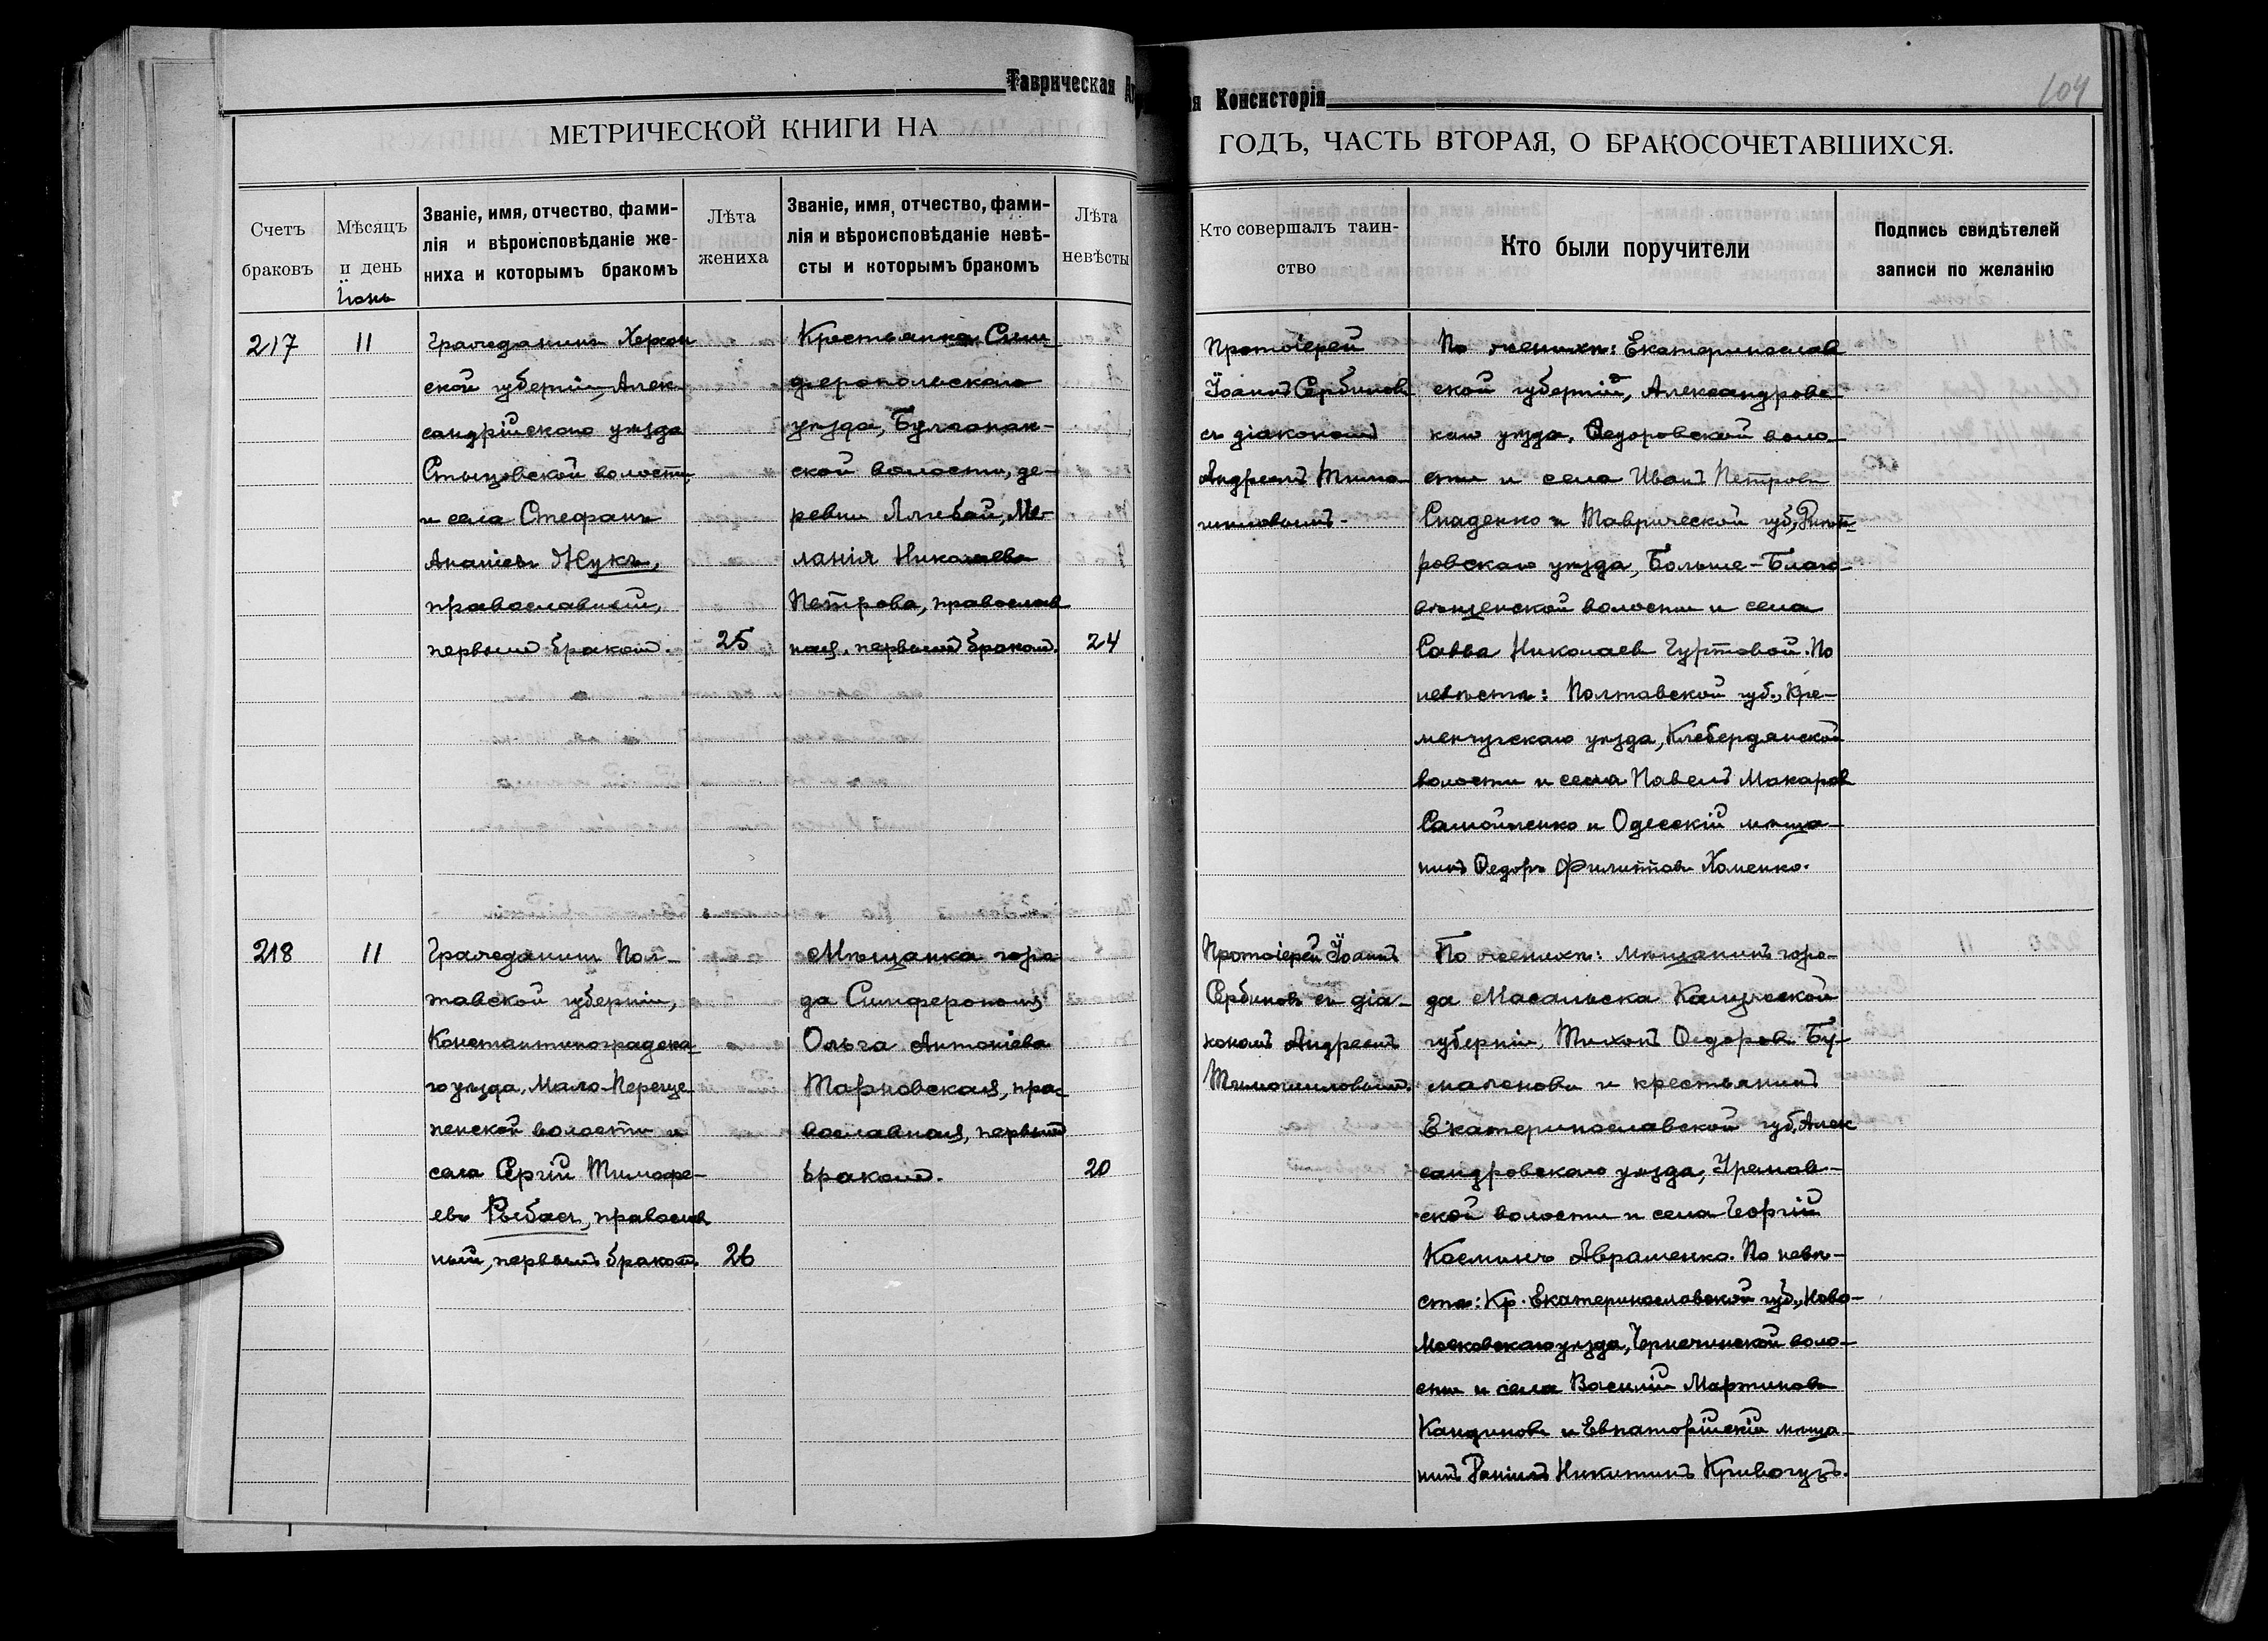 Таврическая
я Консисторія
104
МЕТРИЧЕСКОЙ КНИГИ НА
ГОДЪ, ЧАСТЬ ВТОРАЯ, О БРАКОСОЧЕТАВШИХСЯ.
Счетъ браковъ
Мѣсяцъ и день
Званіе, имя, отчество, фами-
лія и вѣроисповѣданіе же-
ниха и которымъ бракомъ
Лѣта жениха
Званіе, имя, отчество, фами-
лія и вѣроисповѣданіе невѣ-
сты и которымъ бракомъ
Лѣта невѣсты
Кто совершалъ таин-
ство
Кто были поручители
Подпись свидѣтелей
записи по желанію
Іюнь
217
11
Гражданинъ Херсон
ской губерніи, Алек
сандрійскаго уѣзда
волости,
и села Стефанъ
Ананіевъ Жукъ,
православный,
первымъ бракомъ.
25
Крестьянка Сим
феропольскаго
уѣзда, Булганак-
ской волости, де-
ревни Ме-
ланія Николаева
Петрова, православ
ная, первымъ бракомъ.
24
Протоіерей
Іоаннъ Сербиновъ
съ діакономъ
Андреемъ Тимо
шиловымъ.
По женихѣ: Екатеринослав
ской губерніи, Александровс
каго уѣзда, Федоровской воло
сти и села Иванъ Петровъ
Сладенко и Таврической губ.,
ровскаго уѣзда, Больше-Благо-
вѣщенской волости и села
Савва Николаевъ Гуртовой. По
невѣстѣ: Полтавской губ., Кре-
менчугскаго уѣзда, Клебердянской
волости и села Павелъ Макаровъ
Самойленко и Одесскій мѣща-
нинъ Федоръ Филипповъ Хоменко.
218
11
Гражданинъ Пол-
тавской губерніи,
Константиноградска-
го уѣзда, Мало-Переще
пенской волости и
села Сергій Тимофе-
евъ Рыбасъ, православ
ный, первымъ бракомъ.
26
Мѣщанка горо
да Симферополя
Ольга Антоніева
Тарновская, пра-
вославная, первымъ
бракомъ.
20
Протоіерей Іоаннъ
Сербиновъ съ діа-
кономъ Андреемъ
Тимошиловымъ.
По женихѣ: мѣщанинъ горо-
да Масальска Калужской
губерніи, Тихонъ Федоровъ Бу-
маженовъ и крестьянинъ
Екатеринославской губ. Алек
сандровскаго уѣзда,
ской волости и села Георгій
Косминъ Авраменко. По невѣ-
стѣ: Кр. Екатеринославской губ., Ново-
Московскаго уѣзда, Чернечинской воло-
сти и села Василій Мартиновъ
Кандиновъ и Евпаторійскій мѣща-
нинъ Даніилъ Никитинъ Кривогузъ.